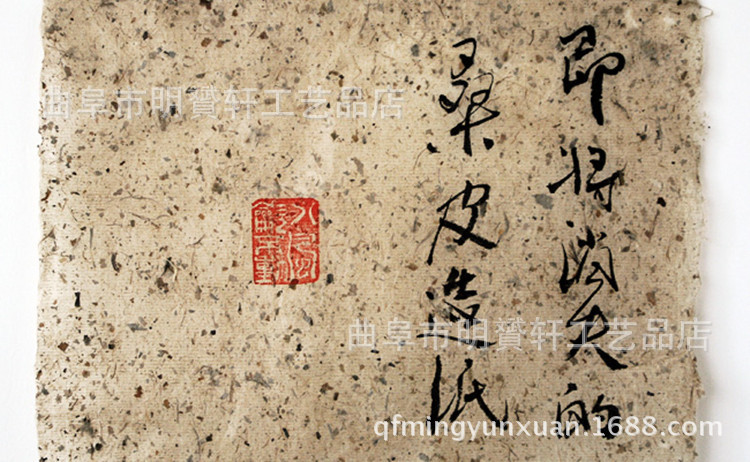 即将消失的
桑皮造纸
曲阜市明贇轩工艺品店
曲阜市明贇轩工艺品店
qfmingyunxuan.1688.com